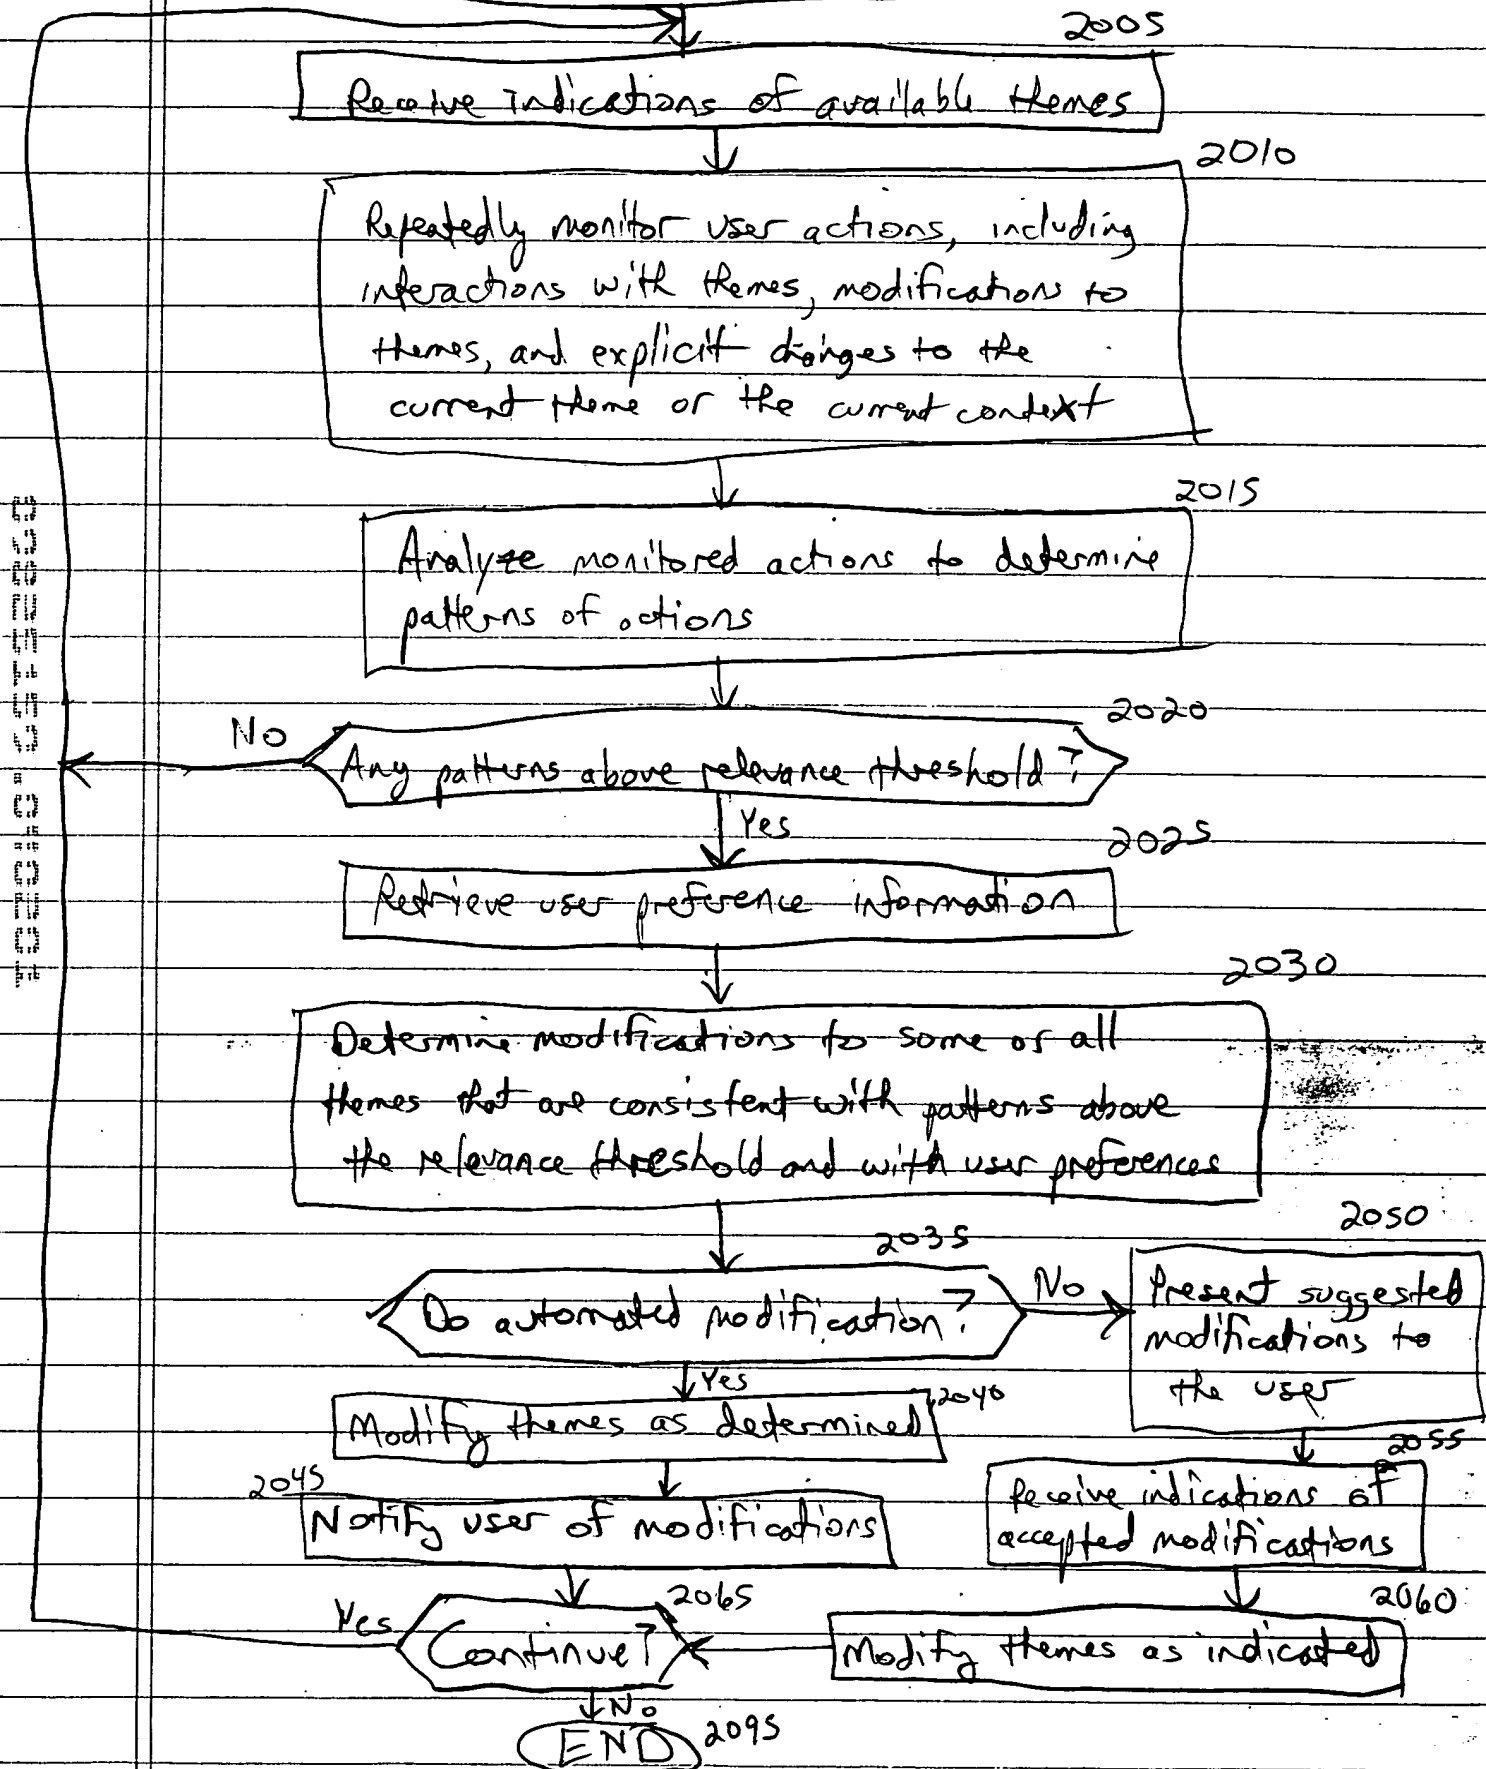 2005
Receive indications of available themes
2010
Repeatedly monitor user actions, including
interactions with themes, modifications to
themes, and explicit changes to the
current theme or the current context
2015
Analyze monitored actions to determine
patterns of actions
2020
No
Any patterns above relevance threshold?
Yes
2025
Retrieve user preference information
2030
Determine modifications to some or all
themes that are consistent with patterns above
the relevance threshold and with user preferences
2035
2050
Do automated modification?
No
Present suggested
modifications to
the user
Yes
2040
Modify themes as determined
2055
Receive indications of
accepted modifications
2045
Notify user of modifications
2065
2060
Yes
Continue?
Modify themes as indicated
No
END
2095